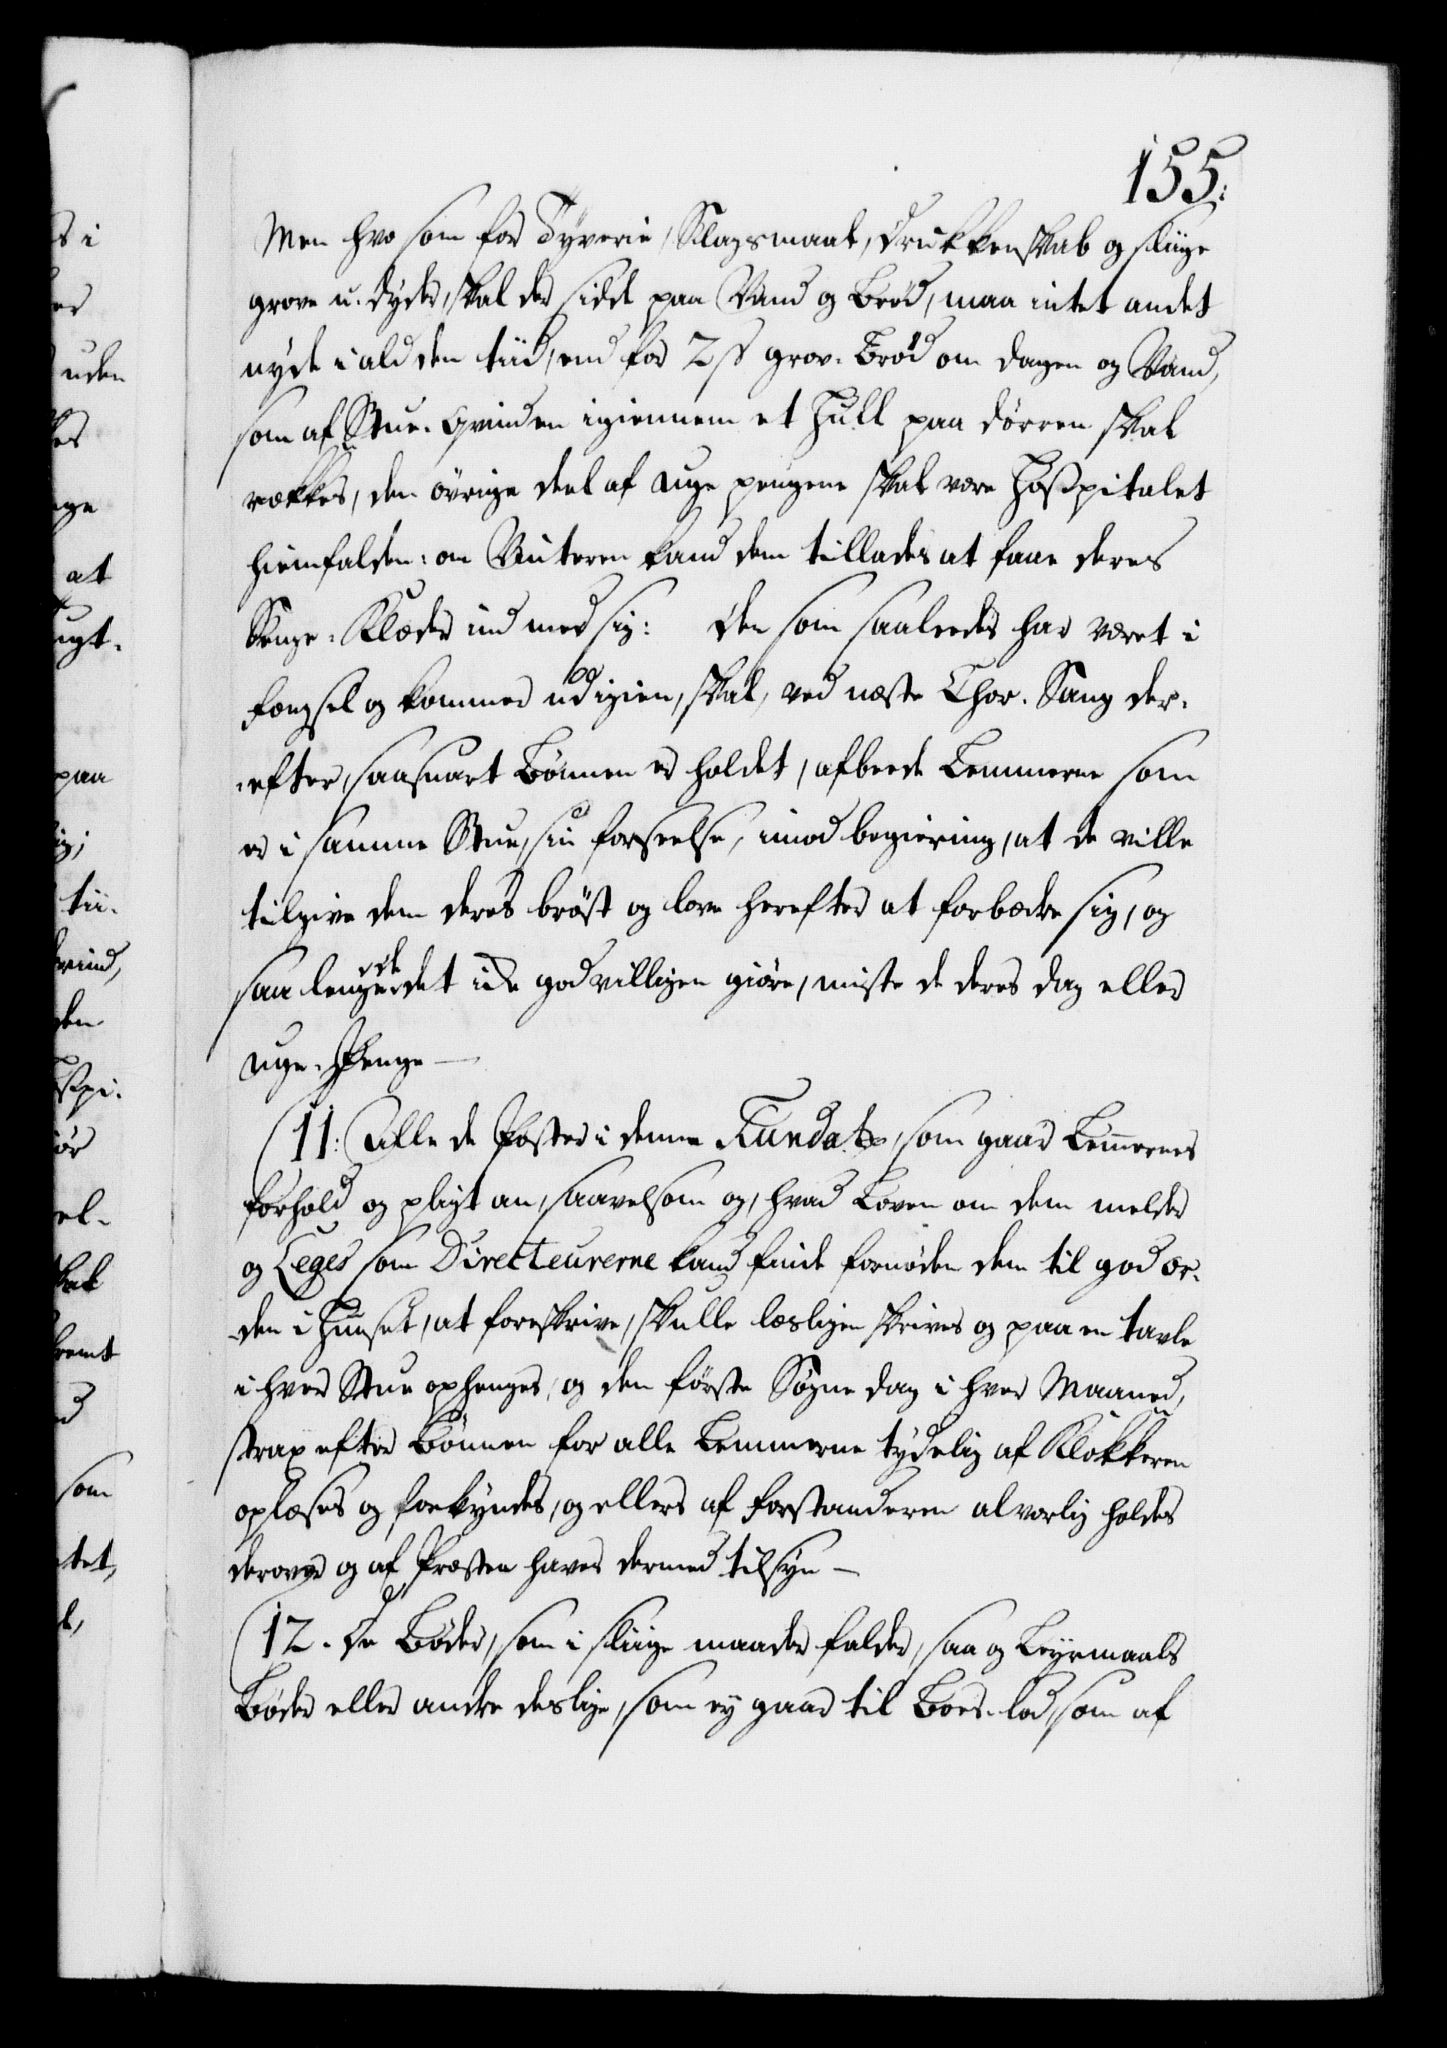 155.
s i
uden
at
ugt.
paa
tii.
den
som
tet,
Men hvo som for Tyverie, Slagsmaal, Drukkenskab og sliige
grove u-dyder, skal der sidde paa Vand og Brød, maa intet andet
nyde i ald den tiid, end for 2 ß grov-Brød om dagen og Vand,
som af Stue-Qvinden igiennem et Hull paa dørren skal
rækkes, den øvrige deel af uge pengene skal være Hospitalet
hiemfalden: om Vinteren kand dem tillades at faae deres
Senge-Klæder ind med sig: Den som saaledes har været i
fængsel og kommer ud igien, skal, ved næste Chor-Sang der-
efter, saasnart Bønnen er holdet, afbeede Lemmerne som
er i samme Stue, sin forseelse, imod begiering, at de ville
tilgive dem deres brøst og love herefter at forbedre sig, og
saa lenge de det icke godvilligen giøre, miste de deres dag eller
uge-Penge
11: Alle de Poster i denne Fundatz, som gaar Lemmernes
forhold og pligt an, saavelsom og, hvad Loven om dem melder
og Leges som Directeurerne kand finde fornøden dem til god or-
den i Huuset, at foreskrive, skulle læsligen skrives og paa en tavle
i hver Stue ophenges, og den første Søgne dag i hver Maaned,
strax efter Bønnen for alle Lemmerne tydelig af Klokkeren
oplæses og forkyndes, og ellers af Forstanderen alvorlig holdes
derover og af Præsten haves dermed tilsyn
12. De Bøder, som i sliige maader falder, saa og Leyermaals
Bøder eller andre deslige, som ey gaar til Boes-lod, som af